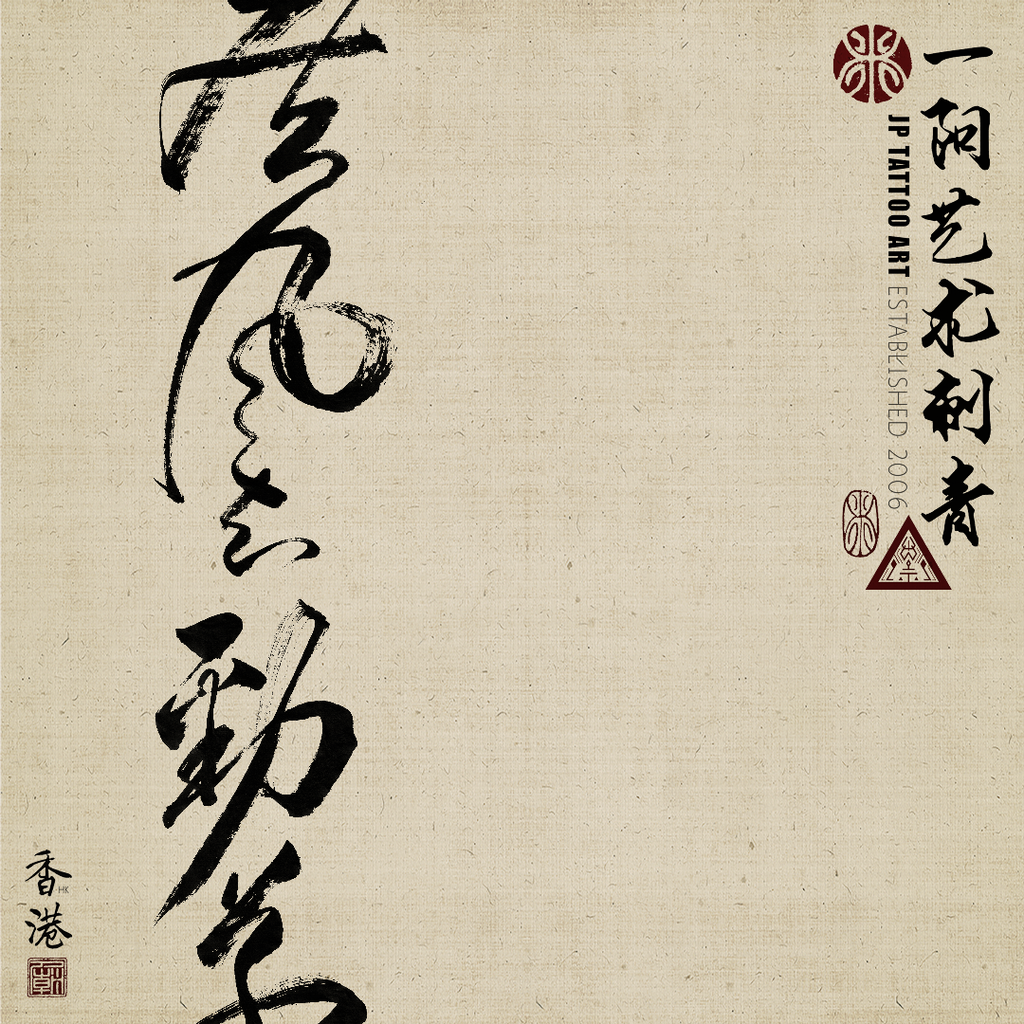 一阳艺术刺青
JP TATTOO ART ESTABLISHED 2006
疾風知勁草
香港
HK